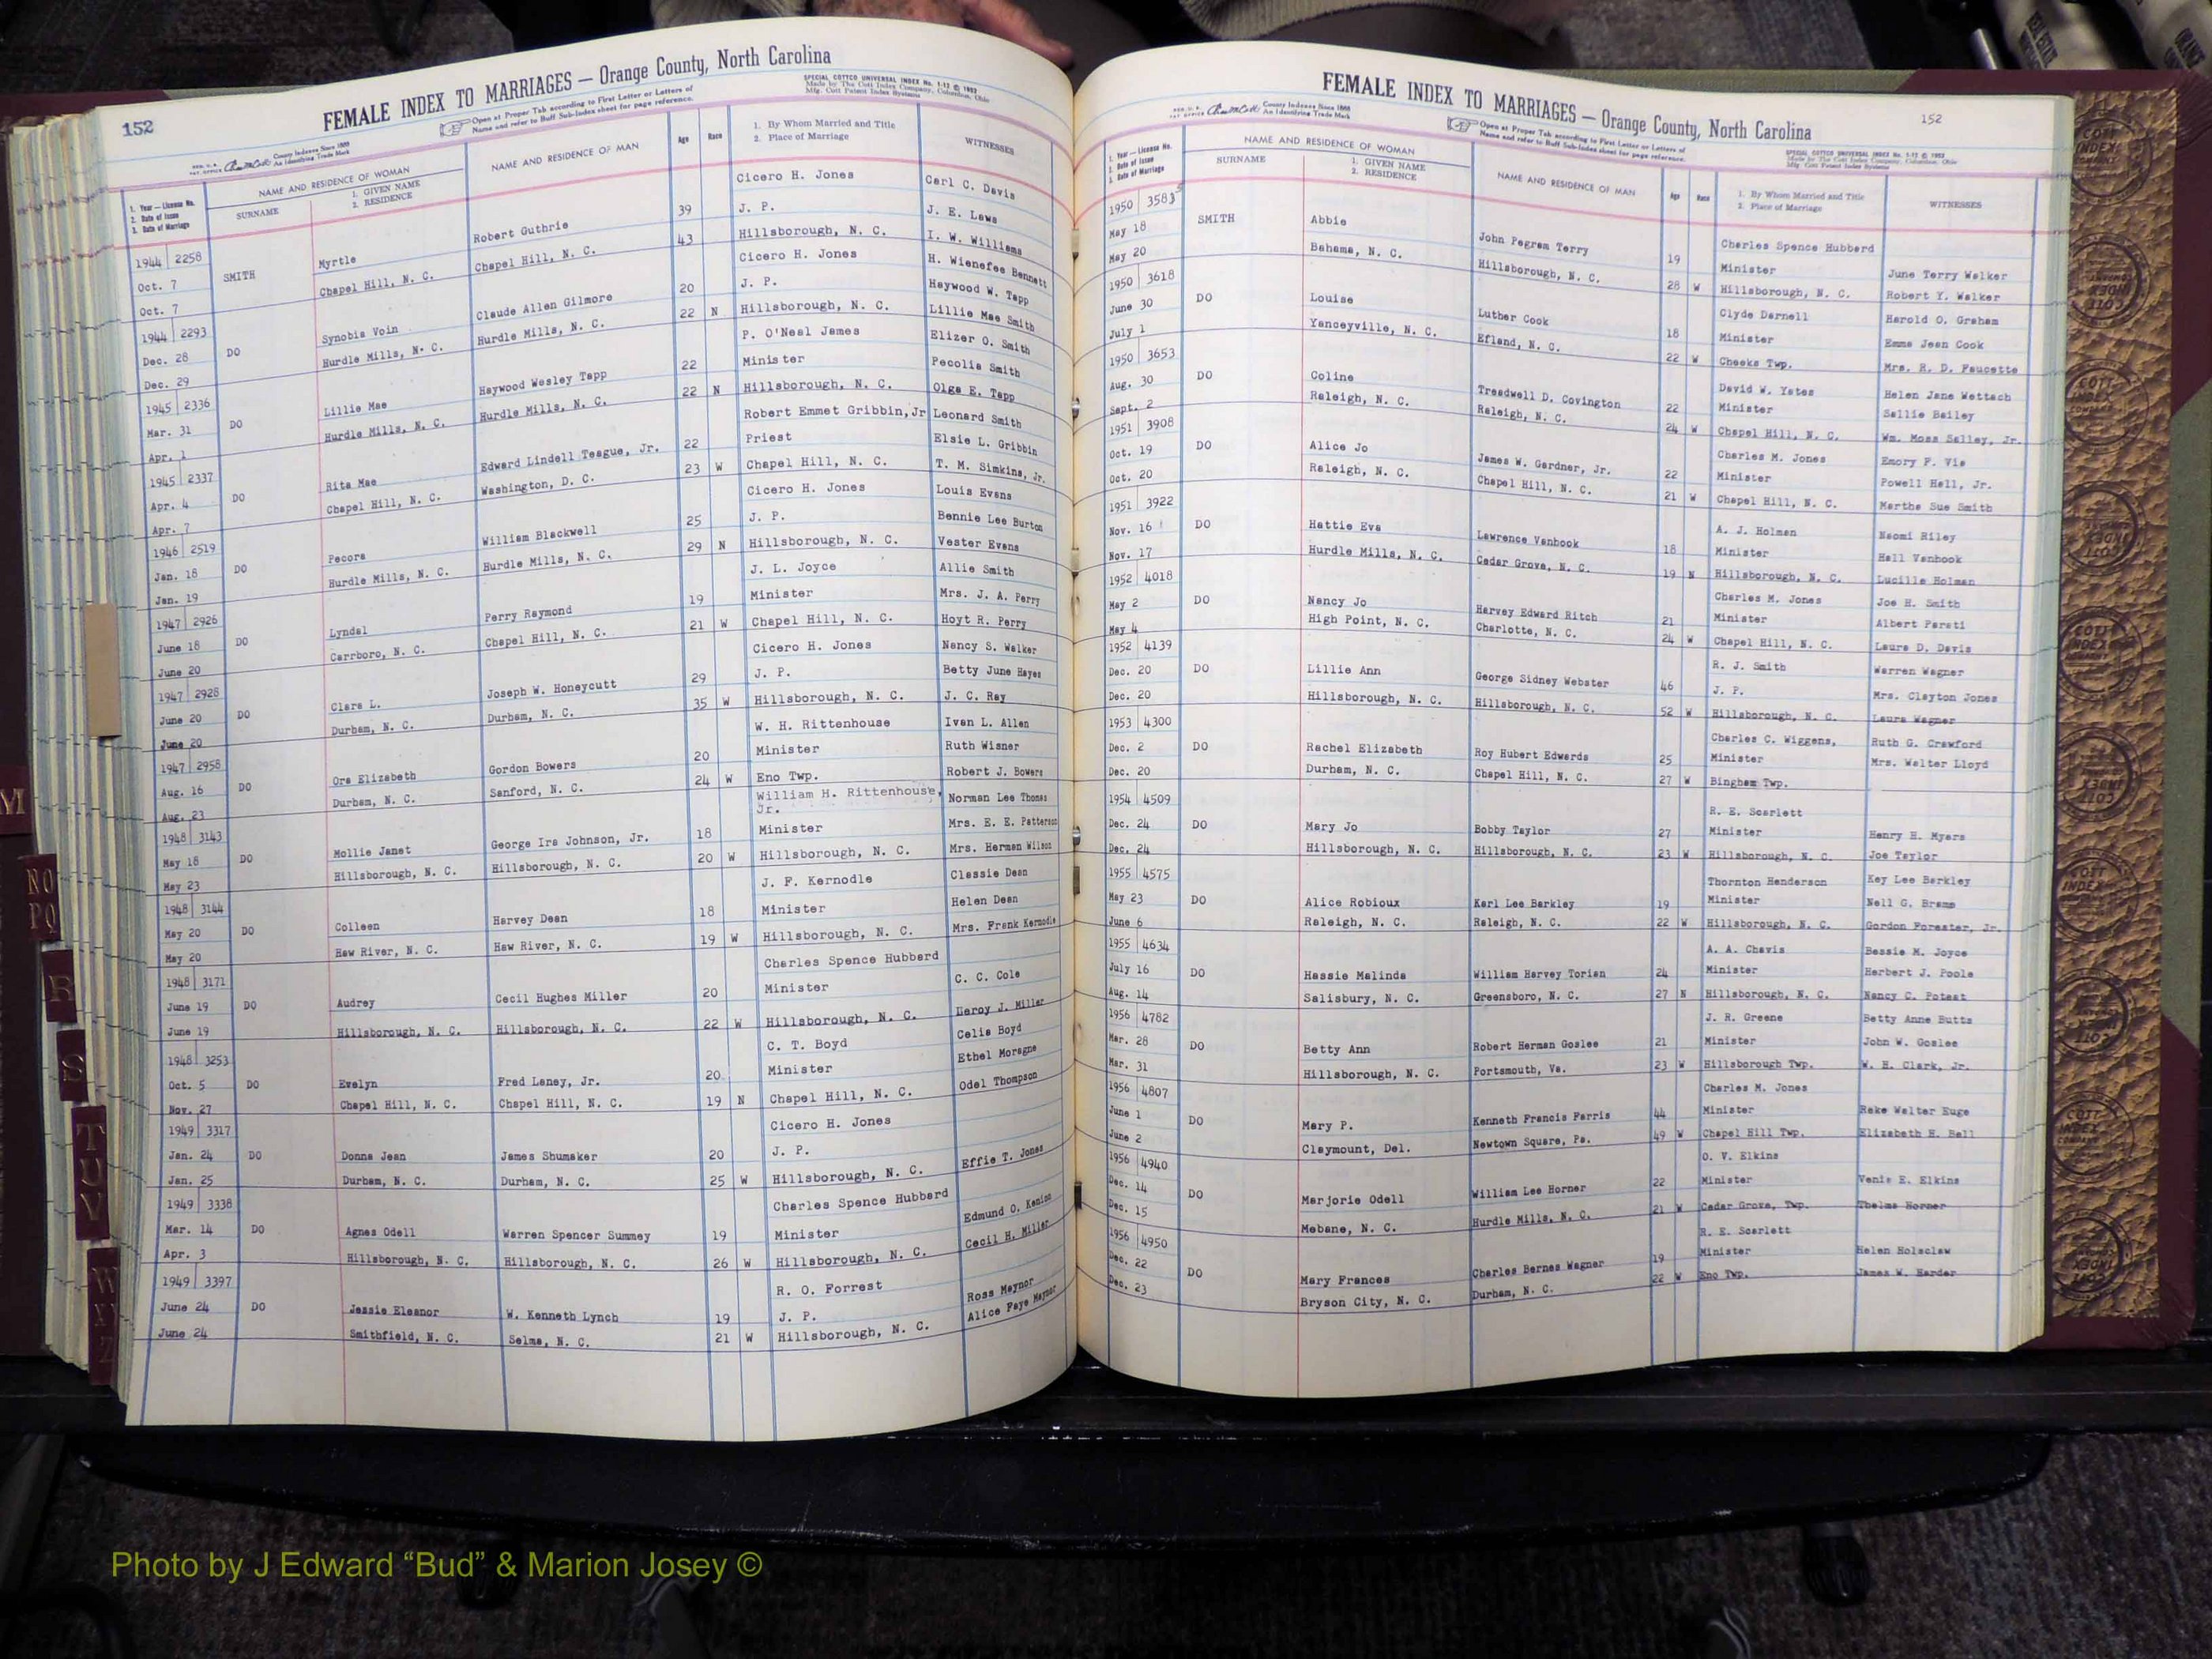 152
FEMALE INDEX TO MARRIAGES — Orange County, North Carolina
Open at Proper Tab according to First Letter or Letters of
Name and refer to Buff Sub-Index sheet for page reference.
SPECIAL COTTCO UNIVERSAL INDEX No. 1-12 © 1952
Made by The Cott Index Company, Columbus, Ohio
Mfg. Cott Patent Index Systems
County Indexes Since 1888
An Identifying Trade Mark
1. Year — License No.
2. Date of Issue
3. Date of Marriage
NAME AND RESIDENCE OF WOMAN
SURNAME
1. GIVEN NAME
2. RESIDENCE
NAME AND RESIDENCE OF MAN
Age
Race
1. By Whom Married and Title
2. Place of Marriage
WITNESSES
1944 2258 Cicero H. Jones Carl C. Davis
Oct. 7 SMITH Myrtle Robert Guthrie 39 J. P. J. E. Laws
Oct. 7 Chapel Hill, N. C. Chapel Hill, N. C. 43 Hillsborough, N. C. I. W. Williams
1944 2293 Cicero H. Jones H. Wienefee Bennett
Dec. 28 DO Synobia Voin Claude Allen Gilmore 20 J. P. Haywood W. Tapp
Dec. 29 Hurdle Mills, N. C. Hurdle Mills, N. C. 22 N Hillsborough, N. C. Lillie Mae Smith
1945 2336 P. O'Neal James Elizer O. Smith
Mar. 31 DO Lillie Mae Haywood Wesley Tapp 22 Minister Pecolia Smith
Apr. 1 Hurdle Mills, N. C. Hurdle Mills, N. C. 22 N Hillsborough, N. C. Olga E. Tapp
1945 2337 Robert Emmet Gribbin, Jr Leonard Smith
Apr. 4 DO Rita Mae Edward Lindell Teague, Jr. 22 Priest Elsie L. Gribbin
Apr. 7 Chapel Hill, N. C. Washington, D. C. 23 W Chapel Hill, N. C. T. M. Simkins, Jr.
1946 2519 Cicero H. Jones Louis Evans
Jan. 18 DO Pecora William Blackwell 25 J. P. Bennie Lee Burton
Jan. 19 Hurdle Mills, N. C. Hurdle Mills, N. C. 29 N Hillsborough, N. C. Vester Evans
1947 2926 J. L. Joyce Allie Smith
June 18 DO Lyndal Perry Raymond 19 Minister Mrs. J. A. Perry
June 20 Carrboro, N. C. Chapel Hill, N. C. 21 W Chapel Hill, N. C. Hoyt R. Perry
1947 2928 Cicero H. Jones Nancy S. Walker
June 20 DO Clara L. Joseph W. Honeycutt 29 J. P. Betty June Hayes
June 20 Durham, N. C. Durham, N. C. 35 W Hillsborough, N. C. J. C. Ray
1947 2958 W. H. Rittenhouse Ivan L. Allen
Aug. 16 DO Ora Elizabeth Gordon Bowers 20 Minister Ruth Wisner
Aug. 23 Durham, N. C. Sanford, N. C. 24 W Eno Twp. Robert J. Bowers
1948 3143 William H. Rittenhouse, Jr. Norman Lee Thomas
May 18 DO Mollie Janet George Ira Johnson, Jr. 18 Minister Mrs. E. E. Patterson
May 23 Hillsborough, N. C. Hillsborough, N. C. 20 W Hillsborough, N. C. Mrs. Herman Wilson
1948 3144 J. F. Kernodle Classie Dean
May 20 DO Colleen Harvey Dean 18 Minister Helen Dean
May 20 Haw River, N. C. Haw River, N. C. 19 W Hillsborough, N. C. Mrs. Frank Kernodle
1948 3171 Charles Spence Hubbard
June 19 DO Audrey Cecil Hughes Miller 20 Minister C. C. Cole
June 19 Hillsborough, N. C. Hillsborough, N. C. 22 W Hillsborough, N. C. Leroy J. Miller
1948 3253 C. T. Boyd Celia Boyd
Oct. 5 DO Evelyn Fred Laney, Jr. 20 Minister Ethel Moragne
Nov. 27 Chapel Hill, N. C. Chapel Hill, N. C. 19 N Chapel Hill, N. C. Odel Thompson
1949 3317 Cicero H. Jones
Jan. 24 DO Donna Jean James Shumaker 20 J. P.
Jan. 25 Durham, N. C. Durham, N. C. 25 W Hillsborough, N. C. Effie T. Jones
1949 3338 Charles Spence Hubbard
Mar. 14 DO Agnes Odell Warren Spencer Summey 19 Minister Edmund O. Kenion
Apr. 3 Hillsborough, N. C. Hillsborough, N. C. 26 W Hillsborough, N. C. Cecil H. Miller
1949 3397 R. O. Forrest
June 24 DO Jessie Eleanor W. Kenneth Lynch 19 J. P. Ross Maynor
June 24 Smithfield, N. C. Selma, N. C. 21 W Hillsborough, N. C. Alice Faye Maynor
FEMALE INDEX TO MARRIAGES — Orange County, North Carolina
152
County Indexes Since 1888
An Identifying Trade Mark
Open at Proper Tab according to First Letter or Letters of
Name and refer to Buff Sub-Index sheet for page reference.
SPECIAL COTTCO UNIVERSAL INDEX No. 1-12 © 1952
Made by The Cott Index Company, Columbus, Ohio
Mfg. Cott Patent Index Systems
1. Year — License No.
2. Date of Issue
3. Date of Marriage
NAME AND RESIDENCE OF WOMAN
SURNAME
1. GIVEN NAME
2. RESIDENCE
NAME AND RESIDENCE OF MAN
Age
Race
1. By Whom Married and Title
2. Place of Marriage
WITNESSES
1950 3583 Charles Spence Hubbard
May 18 SMITH Abbie John Pegram Terry 19 Minister June Terry Walker
May 20 Bahama, N. C. Hillsborough, N. C. 28 W Hillsborough, N. C. Robert Y. Walker
1950 3618 Clyde Darnell Harold O. Graham
June 30 DO Louise Luther Cook 18 Minister Emma Jean Cook
July 1 Yanceyville, N. C. Efland, N. C. 22 W Cheeks Twp. Mrs. R. D. Faucette
1950 3653 David W. Yates Helen Jane Wettach
Aug. 30 DO Coline Treadwell D. Covington 22 Minister Sallie Bailey
Sept. 2 Raleigh, N. C. Raleigh, N. C. 24 W Chapel Hill, N. C. Wm. Moss Salley, Jr.
1951 3908 Charles M. Jones Emory F. Via
Oct. 19 DO Alice Jo James W. Gardner, Jr. 22 Minister Powell Hall, Jr.
Oct. 20 Raleigh, N. C. Chapel Hill, N. C. 21 W Chapel Hill, N. C. Martha Sue Smith
1951 3922 A. J. Holman Naomi Riley
Nov. 16 DO Hattie Eva Lawrence Vanhook 18 Minister Hall Vanhook
Nov. 17 Hurdle Mills, N. C. Cedar Grove, N. C. 19 N Hillsborough, N. C. Lucille Holman
1952 4018 Charles M. Jones Joe H. Smith
May 2 DO Nancy Jo Harvey Edward Ritch 21 Minister Albert Parati
May 4 High Point, N. C. Charlotte, N. C. 24 W Chapel Hill, N. C. Laura D. Davis
1952 4139 R. J. Smith Warren Wagner
Dec. 20 DO Lillie Ann George Sidney Webster 46 J. P. Mrs. Clayton Jones
Dec. 20 Hillsborough, N. C. Hillsborough, N. C. 52 W Hillsborough, N. C. Laura Wagner
1953 4300 Charles C. Wiggens, Ruth G. Crawford
Dec. 2 DO Rachel Elizabeth Roy Hubert Edwards 25 Minister Mrs. Walter Lloyd
Dec. 20 Durham, N. C. Chapel Hill, N. C. 27 W Bingham Twp.
1954 4509 R. E. Scarlett
Dec. 24 DO Mary Jo Bobby Taylor 27 Minister Henry H. Myers
Dec. 24 Hillsborough, N. C. Hillsborough, N. C. 23 W Hillsborough, N. C. Joe Taylor
1955 4575 Thornton Henderson Kay Lee Barkley
May 23 DO Alice Robioux Karl Lee Barkley 19 Minister Nell G. Brame
June 6 Raleigh, N. C. Raleigh, N. C. 22 W Hillsborough, N. C. Gordon Forester, Jr.
1955 4634 A. A. Chavis Bessie M. Joyce
July 16 DO Hassie Malinda William Harvey Torian 24 Minister Herbert J. Poole
Aug. 14 Salisbury, N. C. Greensboro, N. C. 27 N Hillsborough, N. C. Nancy C. Poteat
1956 4782 J. R. Greene Betty Anne Butts
Mar. 28 DO Betty Ann Robert Herman Goslee 21 Minister John W. Goslee
Mar. 31 Hillsborough, N. C. Portsmouth, Va. 23 W Hillsborough Twp. W. H. Clark, Jr.
1956 4807 Charles M. Jones
June 1 DO Mary P. Kenneth Francis Parris 44 Minister Reke Walter Euge
June 2 Claymount, Del. Newtown Square, Pa. 49 W Chapel Hill Twp. Elizabeth H. Bell
1956 4940 O. V. Elkins
Dec. 14 DO Marjorie Odell William Lee Horner 22 Minister Venie E. Elkins
Dec. 15 Mebane, N. C. Hurdle Mills, N. C. 21 W Cedar Grove, Twp. Thelma Horner
1956 4950 R. E. Scarlett
Dec. 22 DO Mary Frances Charles Bernes Wagner 19 Minister Helen Holsclaw
Dec. 23 Bryson City, N. C. Durham, N. C. 22 W Eno Twp. James W. Harder
M
NO
PQ
R
S
T
U
V
W
Z
Photo by J Edward “Bud” & Marion Josey ©